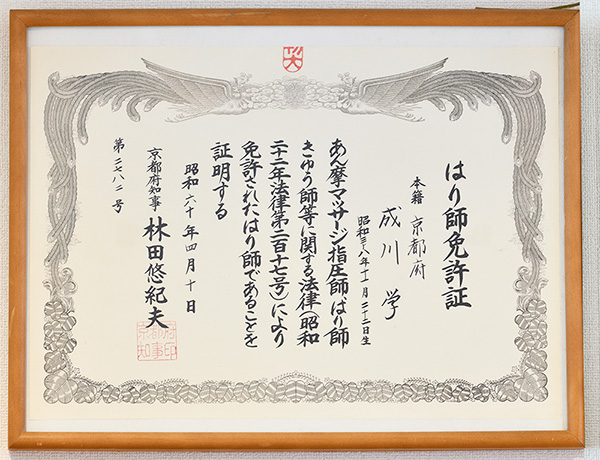 はり師免許証
本籍 京都府
成川 学
昭和三十八年十一月二十二日生
あん摩マッサージ指圧師、はり師
きゅう師等に関する法律(昭和
二十二年法律第二百十七号)により
免許されたはり師であることを
証明する
昭和六十年四月十日
京都府知事 林田悠紀夫
京都府知事印
第二七八二号